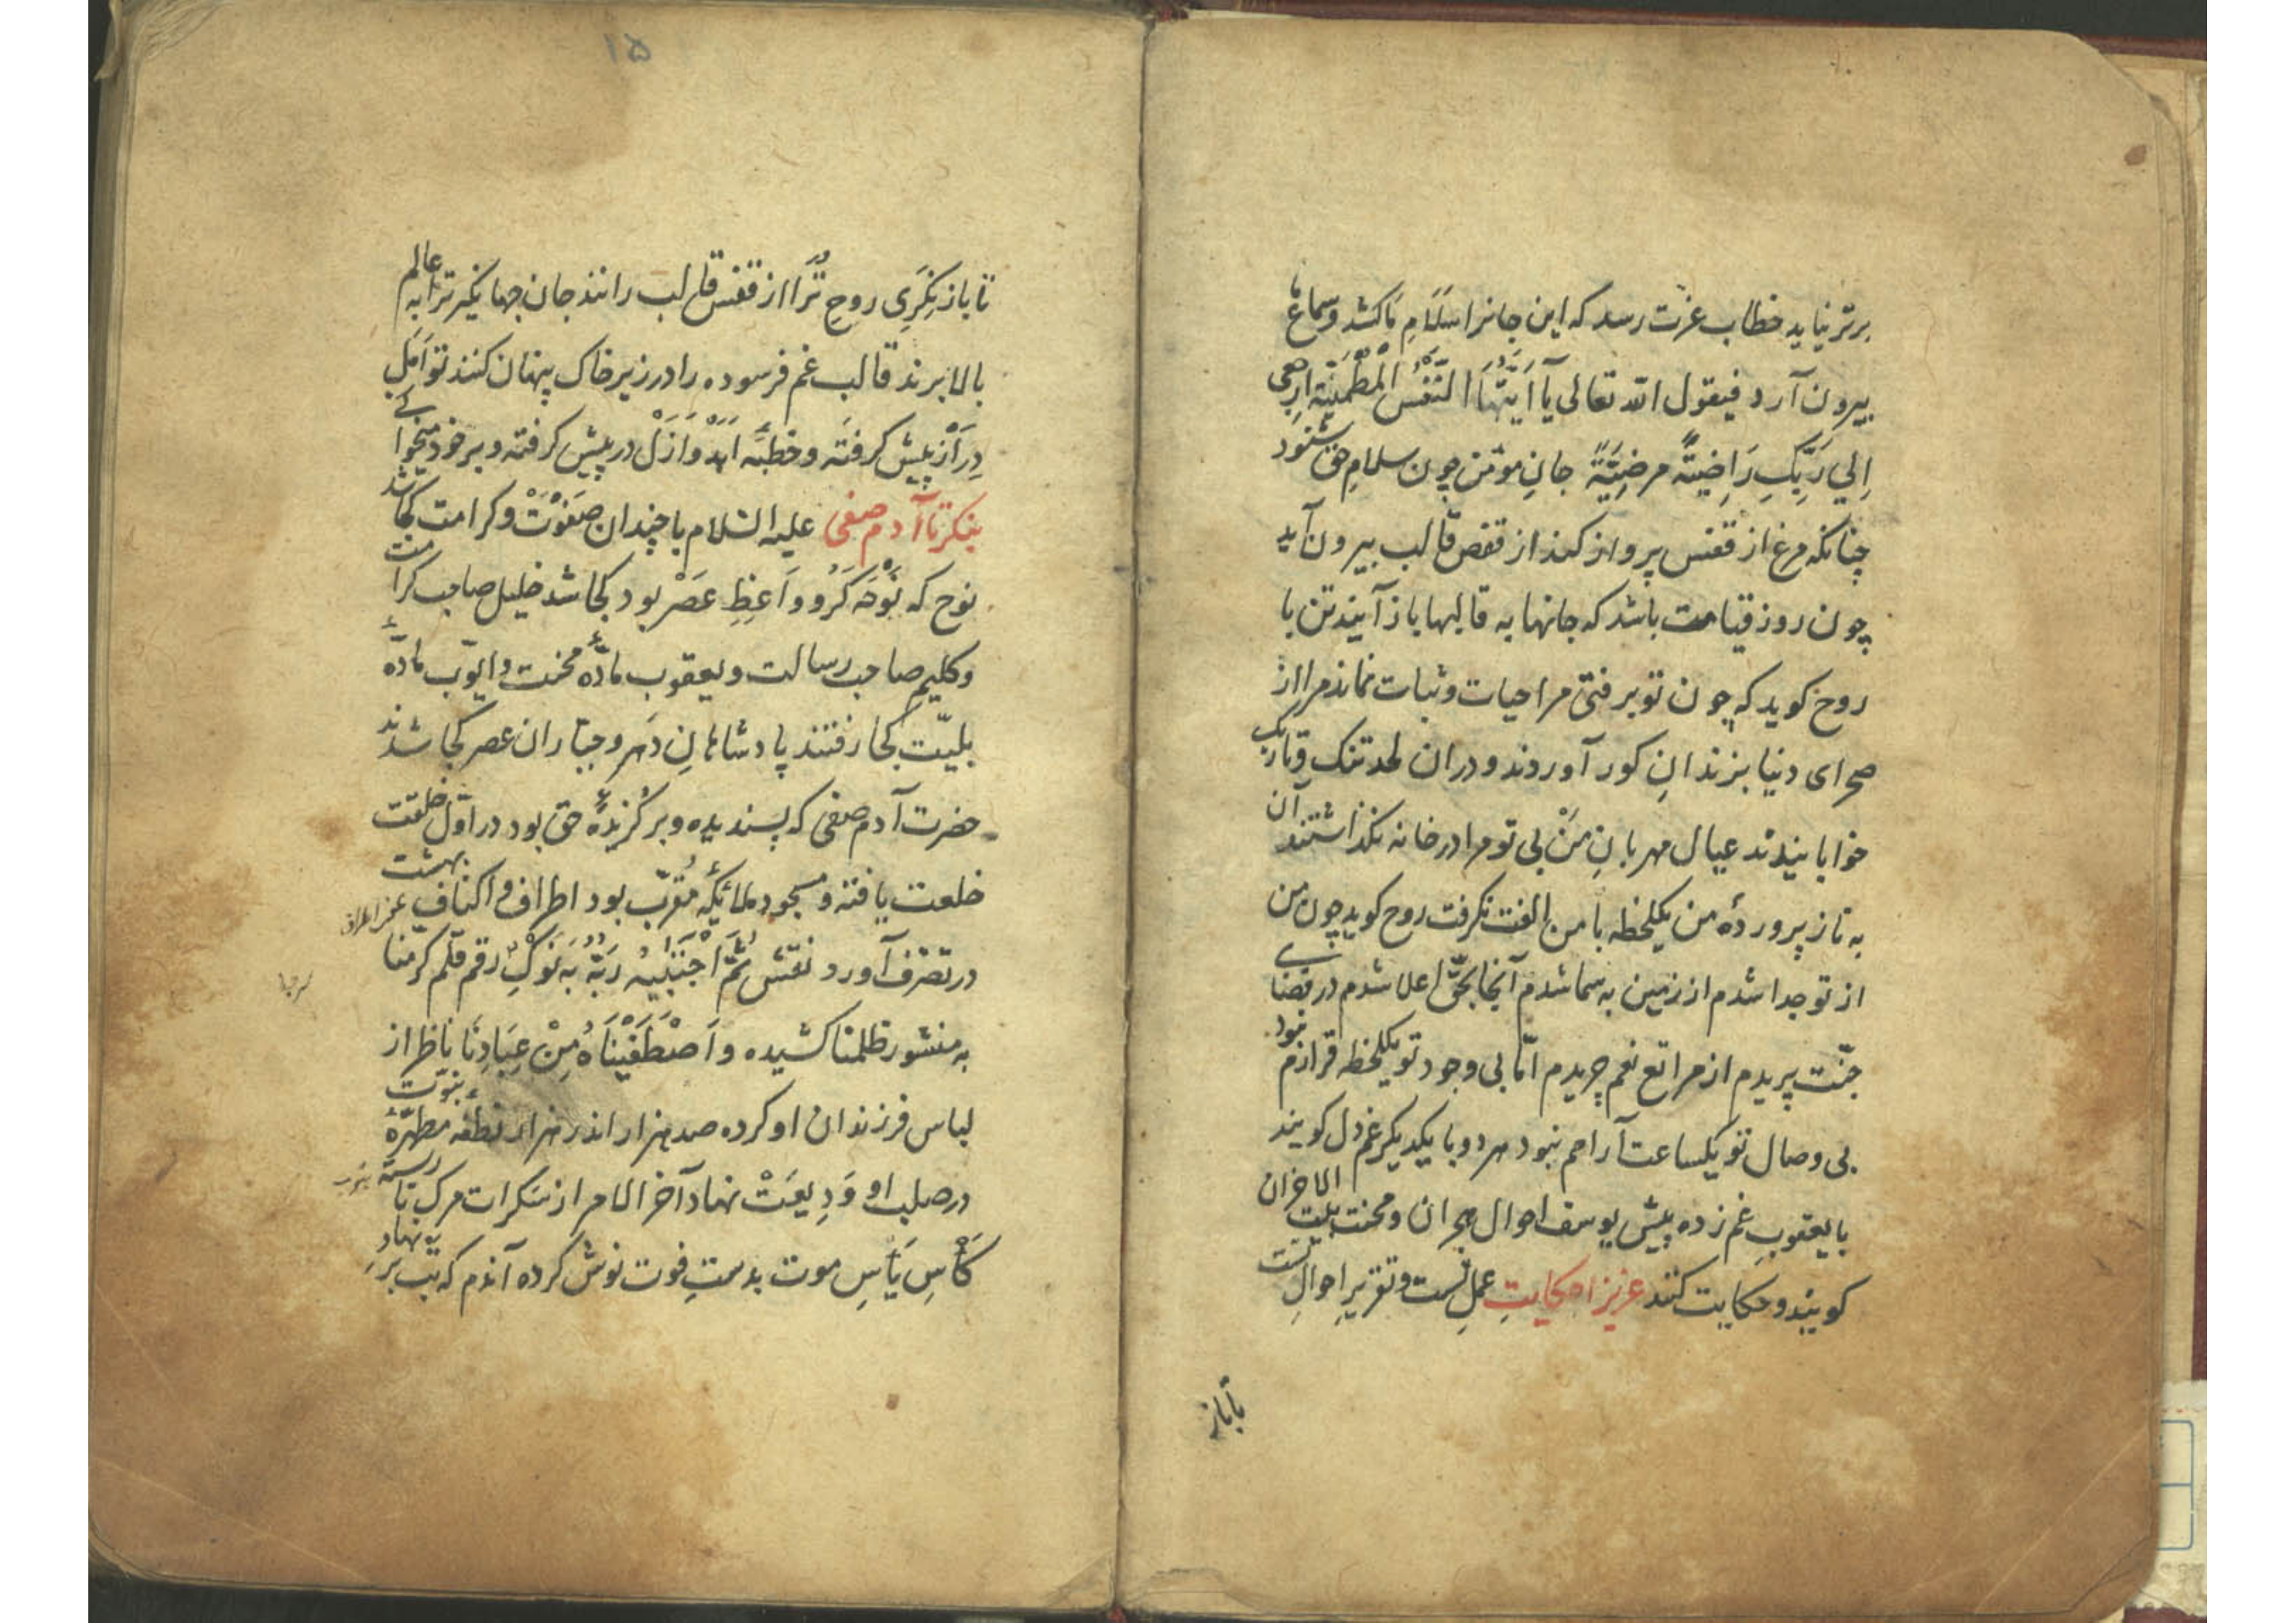 برتر نیاید خطاب عزت رسد که این جانرا سَلَامِ مَا کشد و سماع ما
بیرون آرد فیقول الله تعالی یَآ اَیَّتُهَا النَّفْسُ الْمُطْمَئِنَّة ارجعی
اِلي رَبِّكِ رَاضِیَةً مرضِیَّةً جانِ مؤمن چون سلامِ حق شنود
چنانکه مرغ از قفس پرواز کند از قفص قالب بیرون آید
چون روز قیامت باشد که جانها به قالبها باز آیند تن با
روح کوید که چون تو برفتی مرا حیات و ثبات نماند مرا از
صحرای دنیا بزندانِ کور آوردند و دران لحد تنک و تاریک
خوابانیدند عیال مهربانِ مَنْ بی تو مرا در خانه نکذاشتند آن
به ناز پروردهٔ من یکلحظه با من الفت نکرفت روح کوید چون من
از تو جدا شدم از زمین به سما شدم آنجا بحقّ اعلا شدم در فضای
جنّت پریدم از مراتع نعم چریدم امّا بی وجود تو یکلحظه قرارم نبود
بی وصال تو یکساعت آرامم نبود هر دو با یکدیکر غم دل کویند
با یعقوبِ غم زده پیش یوسف احوال هجران و محنت بیت الاحزان
کویند و حکایت کنند عزیزا حکایتِ عملِ تست و تقریرِ احوالِ تست
تا باز
۱۵
تا باز نِکَرِی روحِ تُرا از قفس قالب رانند جان جهانکیر ترا به عالم
بالا برند قالب غم فرسوده را در زیر خاک پنهان کنند تو اَمَلِ
دِرَاز پیش کرفته و خطبَهٔ اَبَدْ وَ اَزَلْ در پیش کرفته و بر خود میخوانی
بنکر تا آدم صفی علیه السلام با چندان صَفْوَتْ و کرامت کجا شد
نوح که نَوْحَه کَرْ و وَاعِظِ عَصْر بود کجا شد خلیل صاحب کرامت
و کلیمِ صاحب رسالت و یعقوب مادّهٔ محنت و ایّوب مادّهٔ
بلیّت کجا رفتند پادشاهانِ دَهر و جبّاران عصر کجا شدند
حضرت آدم صفی که پسندیده و برکُزیدهٔ حق بود در اوّل خلقت
خلعت یافته و مسجود ملائِکهٔ مُقرّب بود اطراف و اکناف بهشت
در تصرّف آورد نقش ثُمَّ اجْتَبَیٰهُ رَبُّهُ به نَوْكِ رقم قلم کرمنا
به منشور ظلمنا کشیده و اَصْطَفَیْنَاهُ مِنْ عِبَادِنَا ناظر از
لباس فرزندان او کرده صد هزار اندر هزار نطفهٔ مطهّرهٔ نبوّت
در صلب او وَدِیعَتْ نهاد آخر الامر از سَکرات مرک نا رسته
کَأسِ یَأسِ موت بدستِ فوت نوش کرده آندم که تب بر تنه نهادِ